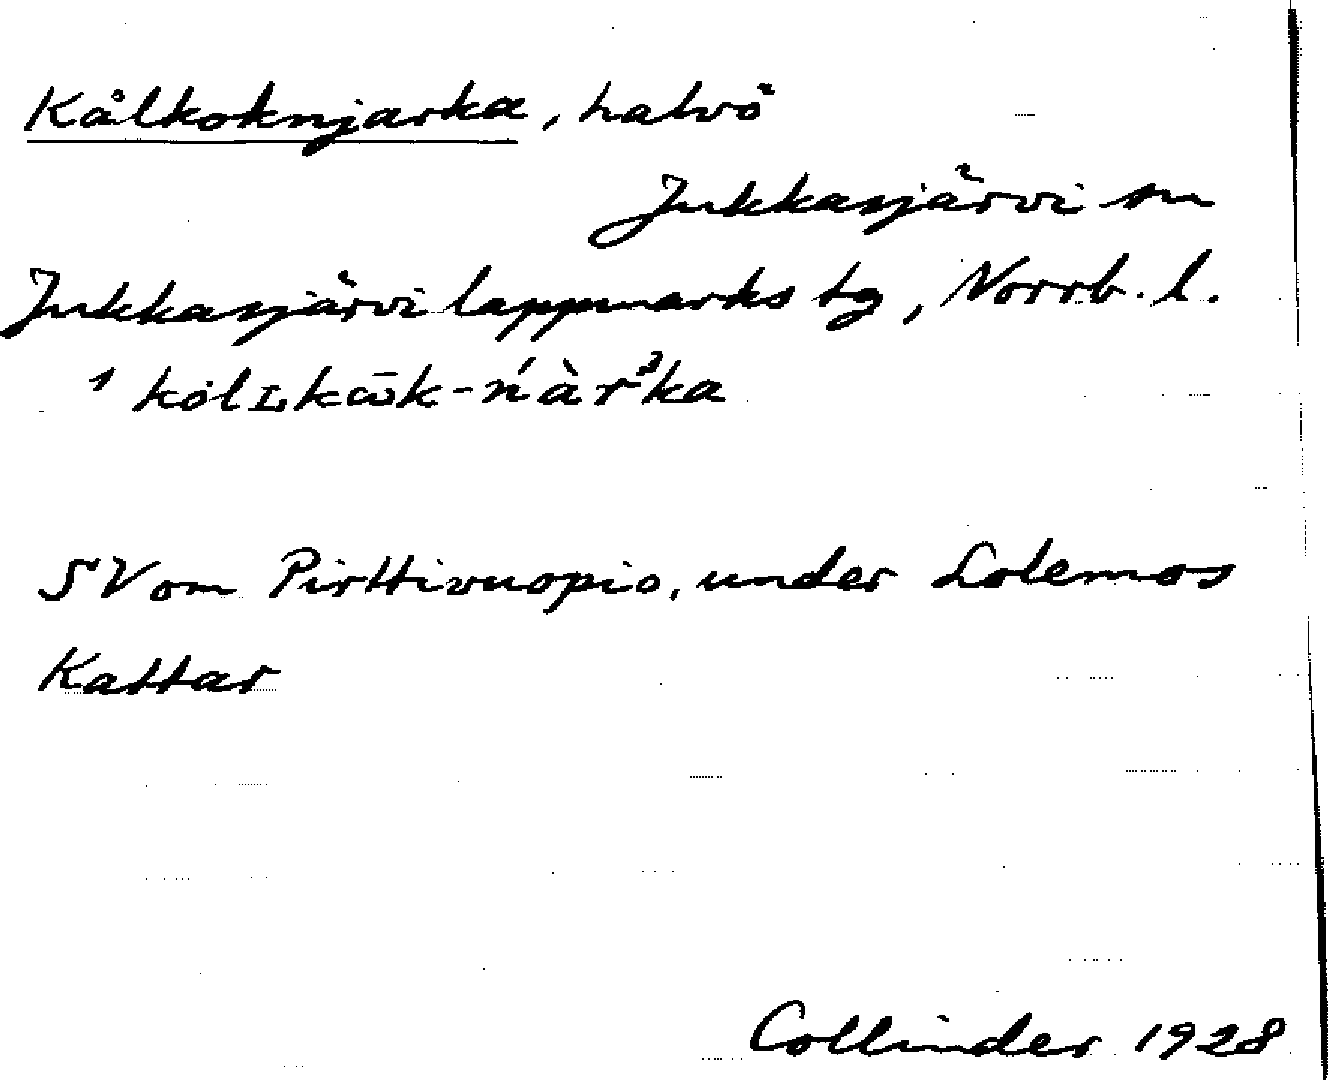 Kålkoknjarka, halvö
Jukkasjärvi sn
Jukkasjärvi lappmarks tg, Norrb. l.
¹ kòlʟkω̄k-ń̀àrᵊka
SV om Pirttivuopio, under Lolemos
Kattar
Collinder 1928